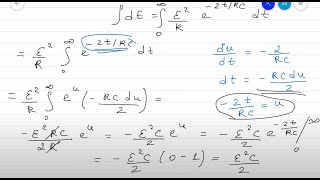 ∫dE = ∫₀^∞ ε²/R e^(-2t/RC) dt
= ε²/R ∫₀^∞ e^(-2t/RC) dt
du/dt = -2/RC
dt = -RC du/2
-2t/RC = u
= ε²/R ∫₀^∞ e^u (-RC du/2) =
-ε²RC/2R e^u = -ε²C/2 e^u = -ε²C/2 e^(-2t/RC) |₀^∞
= -ε²C/2 (0-1) = ε²C/2